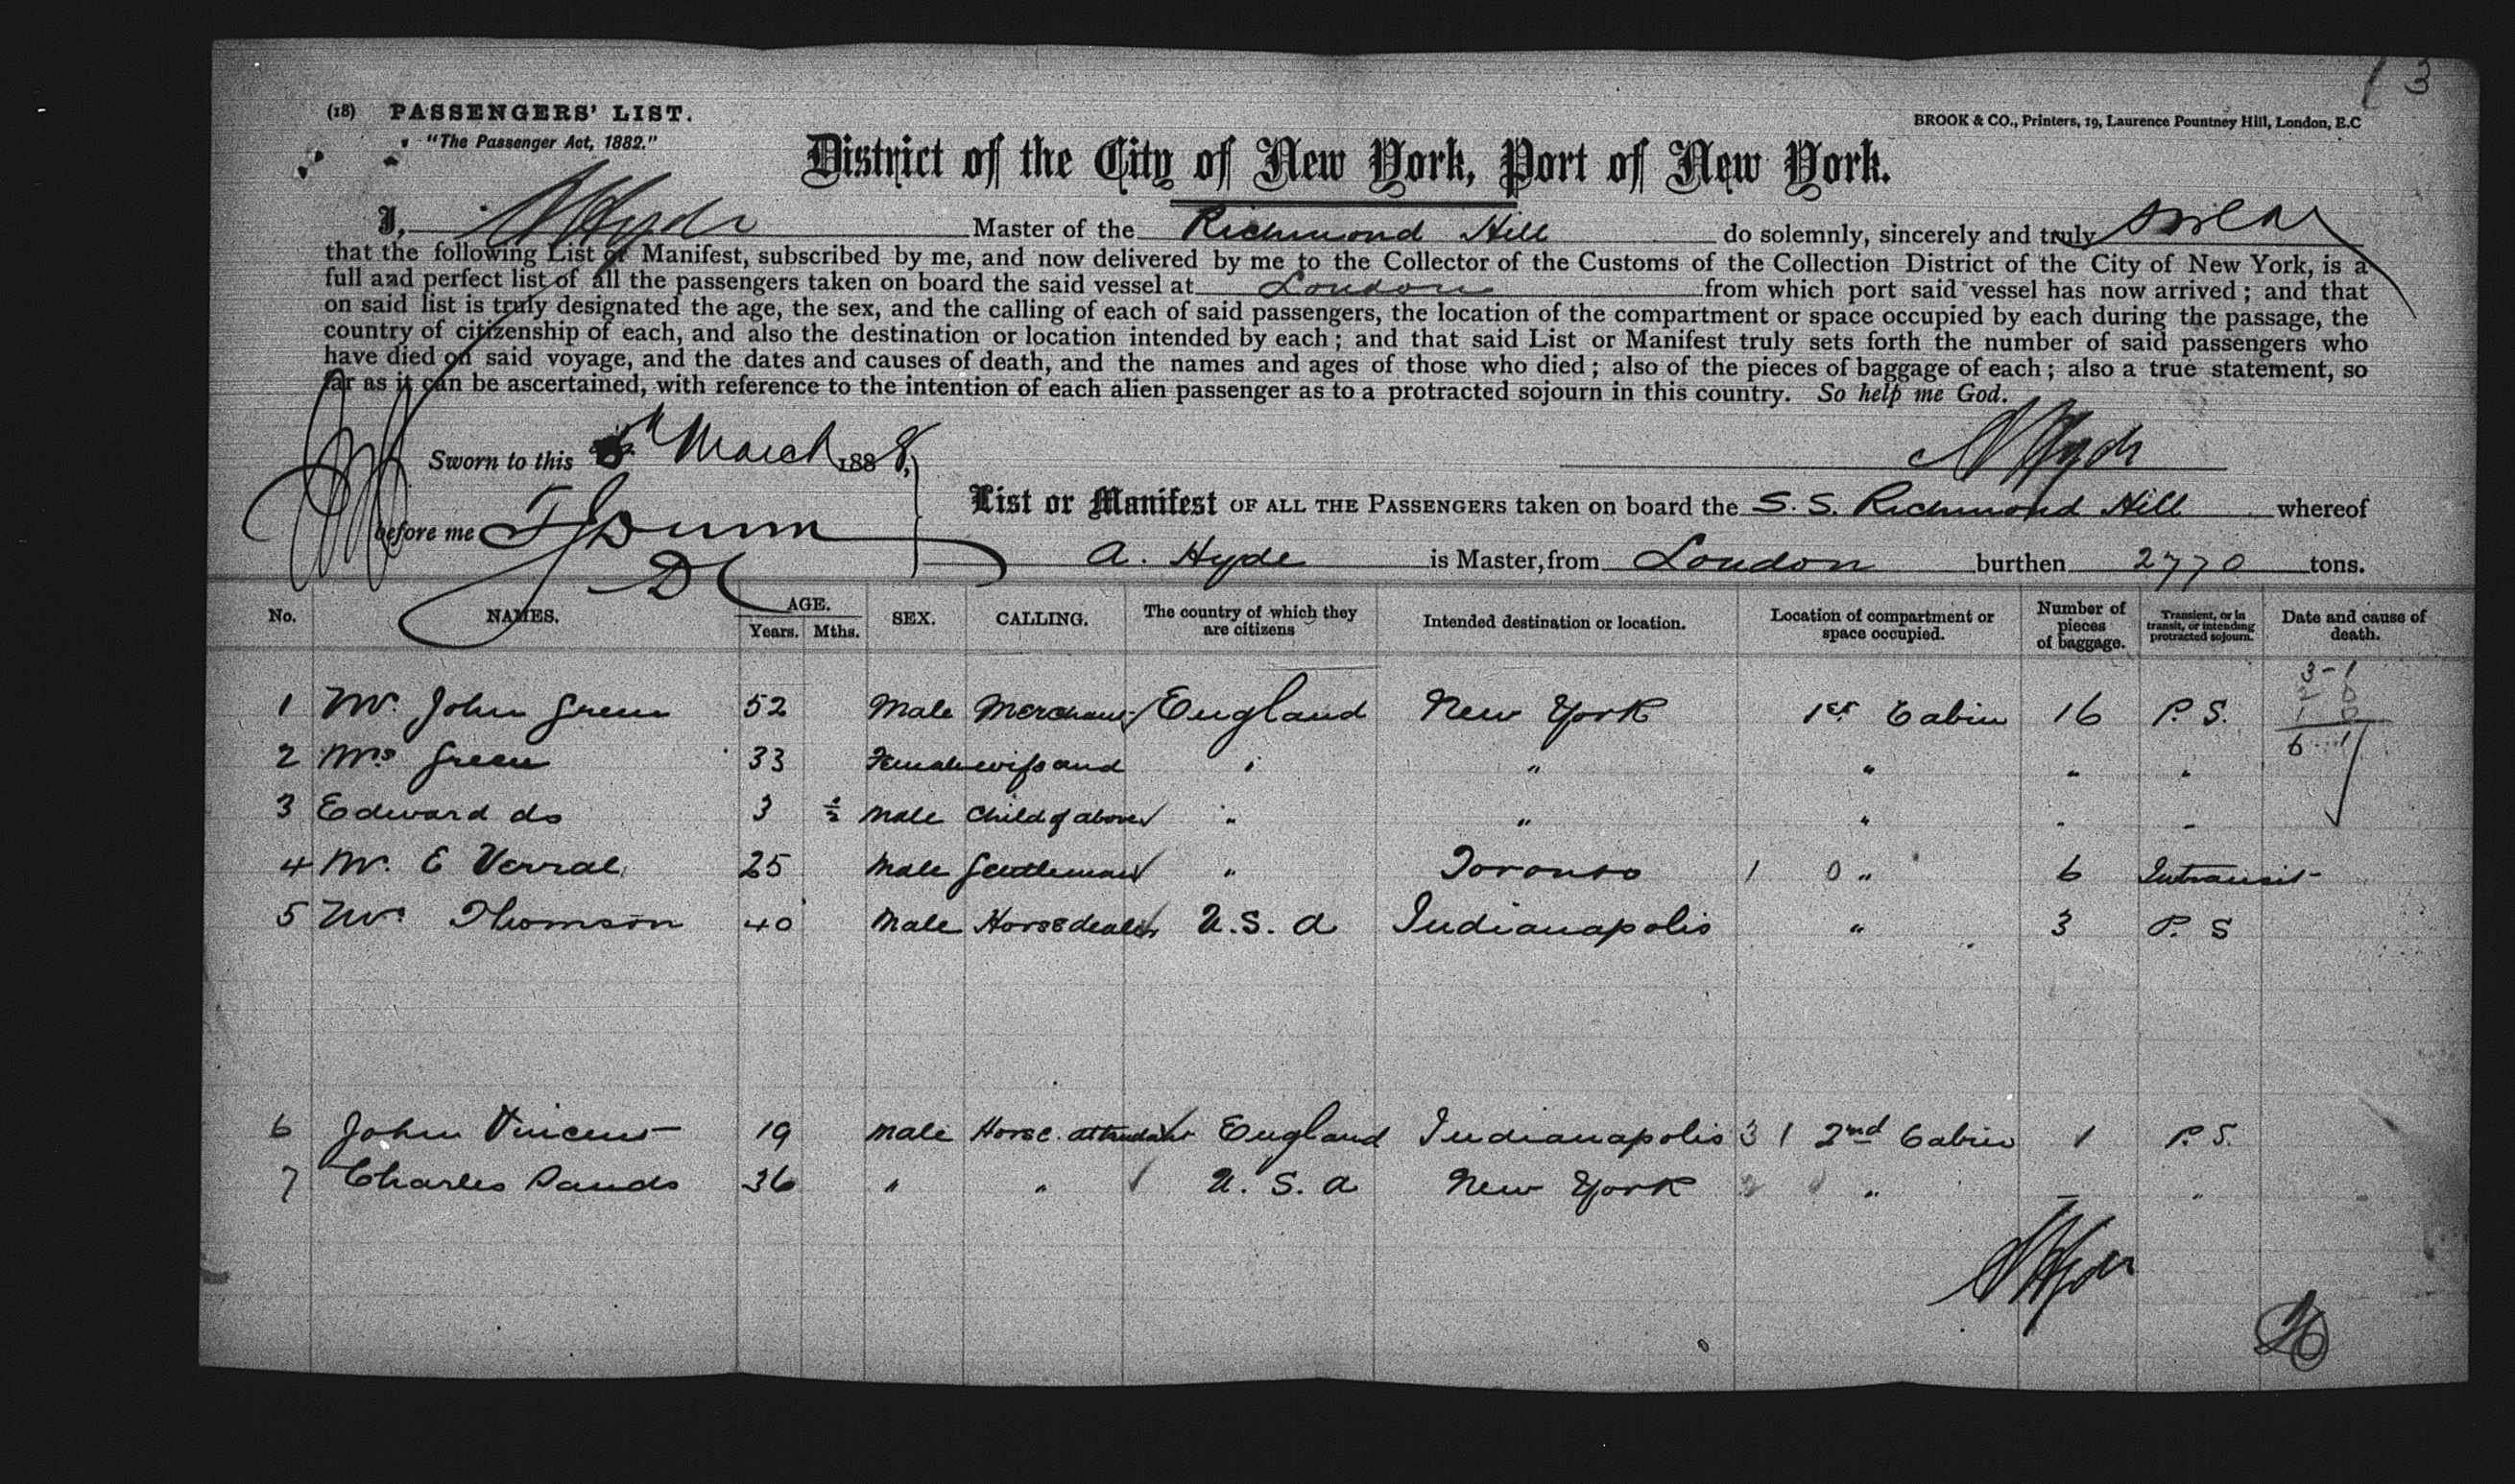 3
(18) PASSENGERS' LIST.
"The Passenger Act, 1882."
BROOK & CO., Printers, 19, Laurence Pountney Hill, London, E.C
District of the City of New York, Port of New York.
I, A Hyde Master of the Richmond Hill do solemnly, sincerely and truly swear
that the following List or Manifest, subscribed by me, and now delivered by me to the Collector of the Customs of the Collection District of the City of New York, is a
full and perfect list of all the passengers taken on board the said vessel at London from which port said vessel has now arrived; and that
on said list is truly designated the age, the sex, and the calling of each of said passengers, the location of the compartment or space occupied by each during the passage, the
country of citizenship of each, and also the destination or location intended by each; and that said List or Manifest truly sets forth the number of said passengers who
have died on said voyage, and the dates and causes of death, and the names and ages of those who died; also of the pieces of baggage of each; also a true statement, so
far as it can be ascertained, with reference to the intention of each alien passenger as to a protracted sojourn in this country. So help me God.
Sworn to this March 1888, A Hyde
before me Dunn
DC
List or Manifest OF ALL THE PASSENGERS taken on board the S. S. Richmond Hill whereof
A. Hyde is Master, from London burthen 2770 tons.
No. NAMES. AGE. Years. Mths. SEX. CALLING. The country of which they are citizens Intended destination or location. Location of compartment or space occupied. Number of pieces of baggage. Transient, or in transit, or intending protracted sojourn. Date and cause of death.
1 Mr. John Green 52 Male Merchant England New York 1st Cabin 16 P. S.
2 Mrs Green 33 Female wife and " " " " "
3 Edward do 3 ½ Male Child of above " " " " "
4 Mr. E Verral 25 Male Gentleman " Toronto 1 0 " 6 Intransit
5 Mr Thomson 40 Male Horsedealer U. S. A Indianapolis " 3 P. S
3-1
6 1
6 John Vincent 19 Male Horse. attendant England Indianapolis 3 1 2nd Cabin 1 P. S.
7 Charles Sands 36 " " U. S. A New York " – "
A Hyde